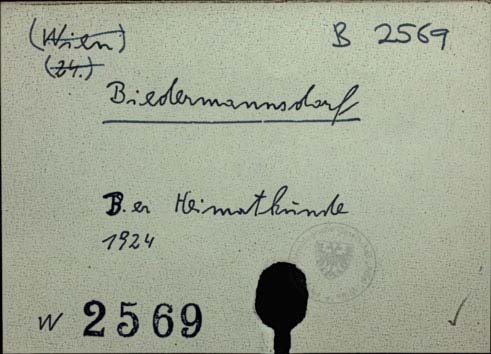 (Wien) B 2569
(24.)
Biedermannsdorf
B.er Heimatkunde
1924
W 2569